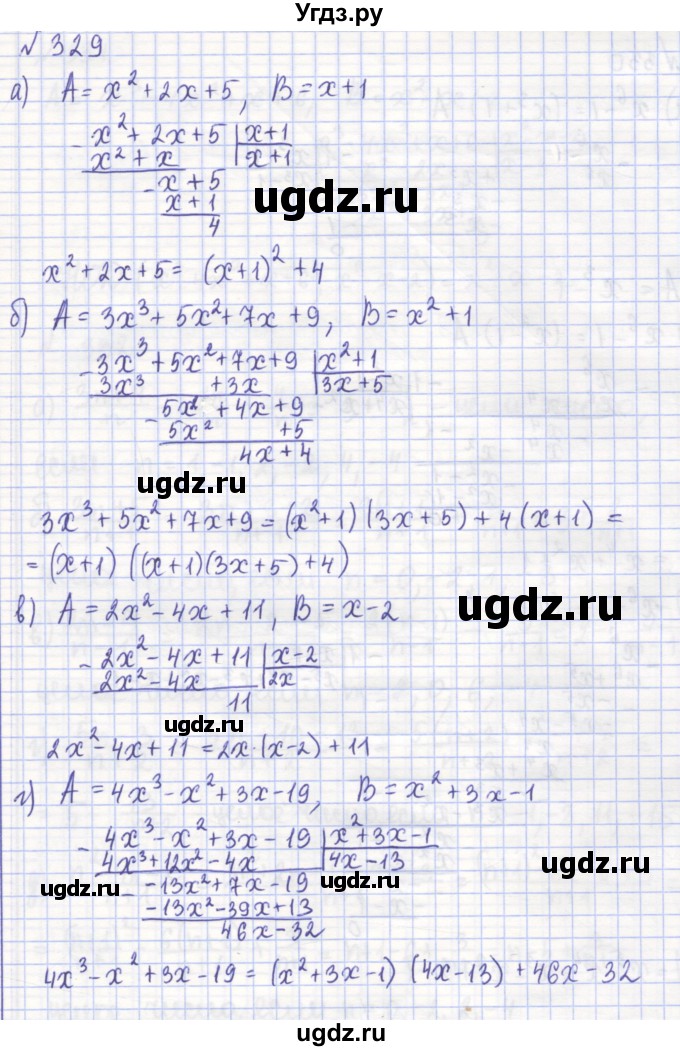 Угдз.ру
№ 329
а) A = x² + 2x + 5, B = x + 1
- x² + 2x + 5 | x + 1
x² + x | x + 1
- x + 5
x + 1
4
ugdz.ru
x² + 2x + 5 = (x + 1)² + 4
б) A = 3x³ + 5x² + 7x + 9, B = x² + 1
- 3x³ + 5x² + 7x + 9 | x² + 1
3x³ + 3x | 3x + 5
- 5x² + 4x + 9
5x² + 5
4x + 4
ugdz.ru
ugdz.ru
3x³ + 5x² + 7x + 9 = (x² + 1) (3x + 5) + 4 (x + 1) =
= (x + 1) ((x + 1)(3x + 5) + 4)
в) A = 2x² - 4x + 11, B = x - 2
ugdz.ru
- 2x² - 4x + 11 | x - 2
2x² - 4x | 2x
11
ugdz.ru
2x² - 4x + 11 = 2x·(x - 2) + 11
г) A = 4x³ - x² + 3x - 19, B = x² + 3x - 1
- 4x³ - x² + 3x - 19 | x² + 3x - 1
4x³ + 12x² - 4x | 4x - 13
- -13x² + 7x - 19
-13x² - 39x + 13
46x - 32
ugdz.ru
ugdz.ru
ugdz.ru
4x³ - x² + 3x - 19 = (x² + 3x - 1) (4x - 13) + 46x - 32
ugdz.ru